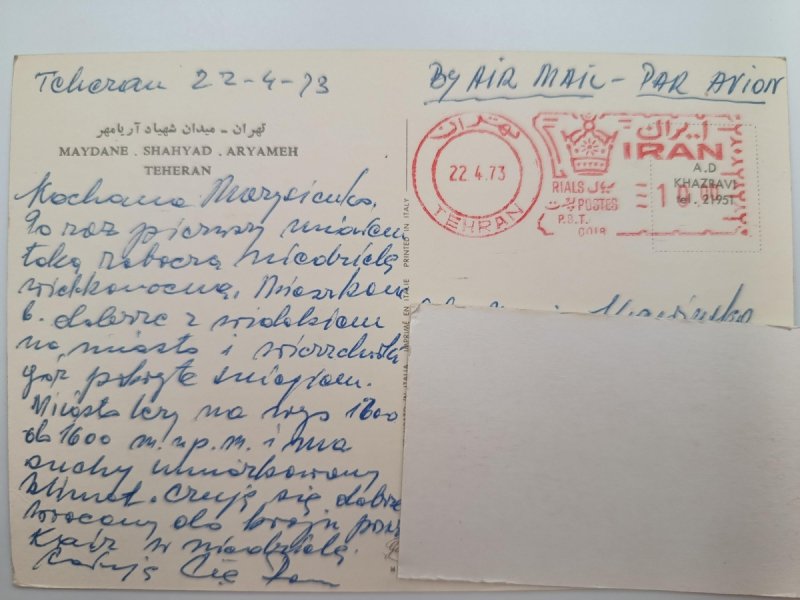 Teheran 22-4-73
BY AIR MAIL - PAR AVION
تهران - میدان شهیاد آریامهر
MAYDANE . SHAHYAD . ARYAMEH
TEHERAN
Kochana
Po raz pierwszy miałem
taką roboczą niedzielę
wielkanocną. Mieszkam
b. dobrze z widokiem
na miasto i wierzchołki
gór pokryte śniegiem.
Miasto leży na wys 1300
do 1600 m.n.p.m. i ma
suchy umiarkowany
klimat. Czuję się dobrze
wracamy do kraju przez
Kair w niedzielę.
Całuję Cię
PRINTED IN ITALY
تهران
22.4.73
TEHRAN
ایران
IRAN
RIALS ریال
POSTES پست
P.B.T.
6018
10 00
A.D
KHAZRAVI
tel. 21951